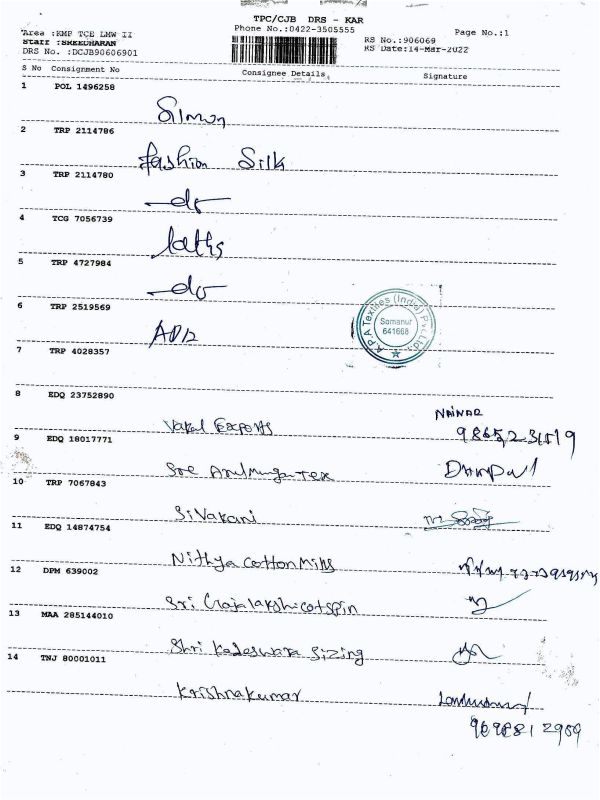 TPC/CJB DRS - KAR
Area :KMP TCE LMW II Phone No.:0422-3505555 RS No.:906069 Page No.:1
Staff :SREEDHARAN RS Date:14-Mar-2022
DRS No. :DCJB90606901
S No Consignment No Consignee Details Signature
1 POL 1496258
Simon
2 TRP 2114786
fashion Silk
3 TRP 2114780
do
4 TCG 7056739
5 TRP 4727984
do
6 TRP 2519569
K P A Textiles (India) Pvt. Ltd.
Somanur
641668
7 TRP 4028357
8 EDQ 23752890
NAINAR
Exports
9 EDQ 18017771
Sre Arulmurga Tex
10 TRP 7067843
Sivakani
11 EDQ 14874754
Nithya Cotton Mills
12 DPM 639002
Sri Gajalakshi cotspin
13 MAA 285144010
Shri Kadeswara Sizing
14 TNJ 80001011
Krishnakumar